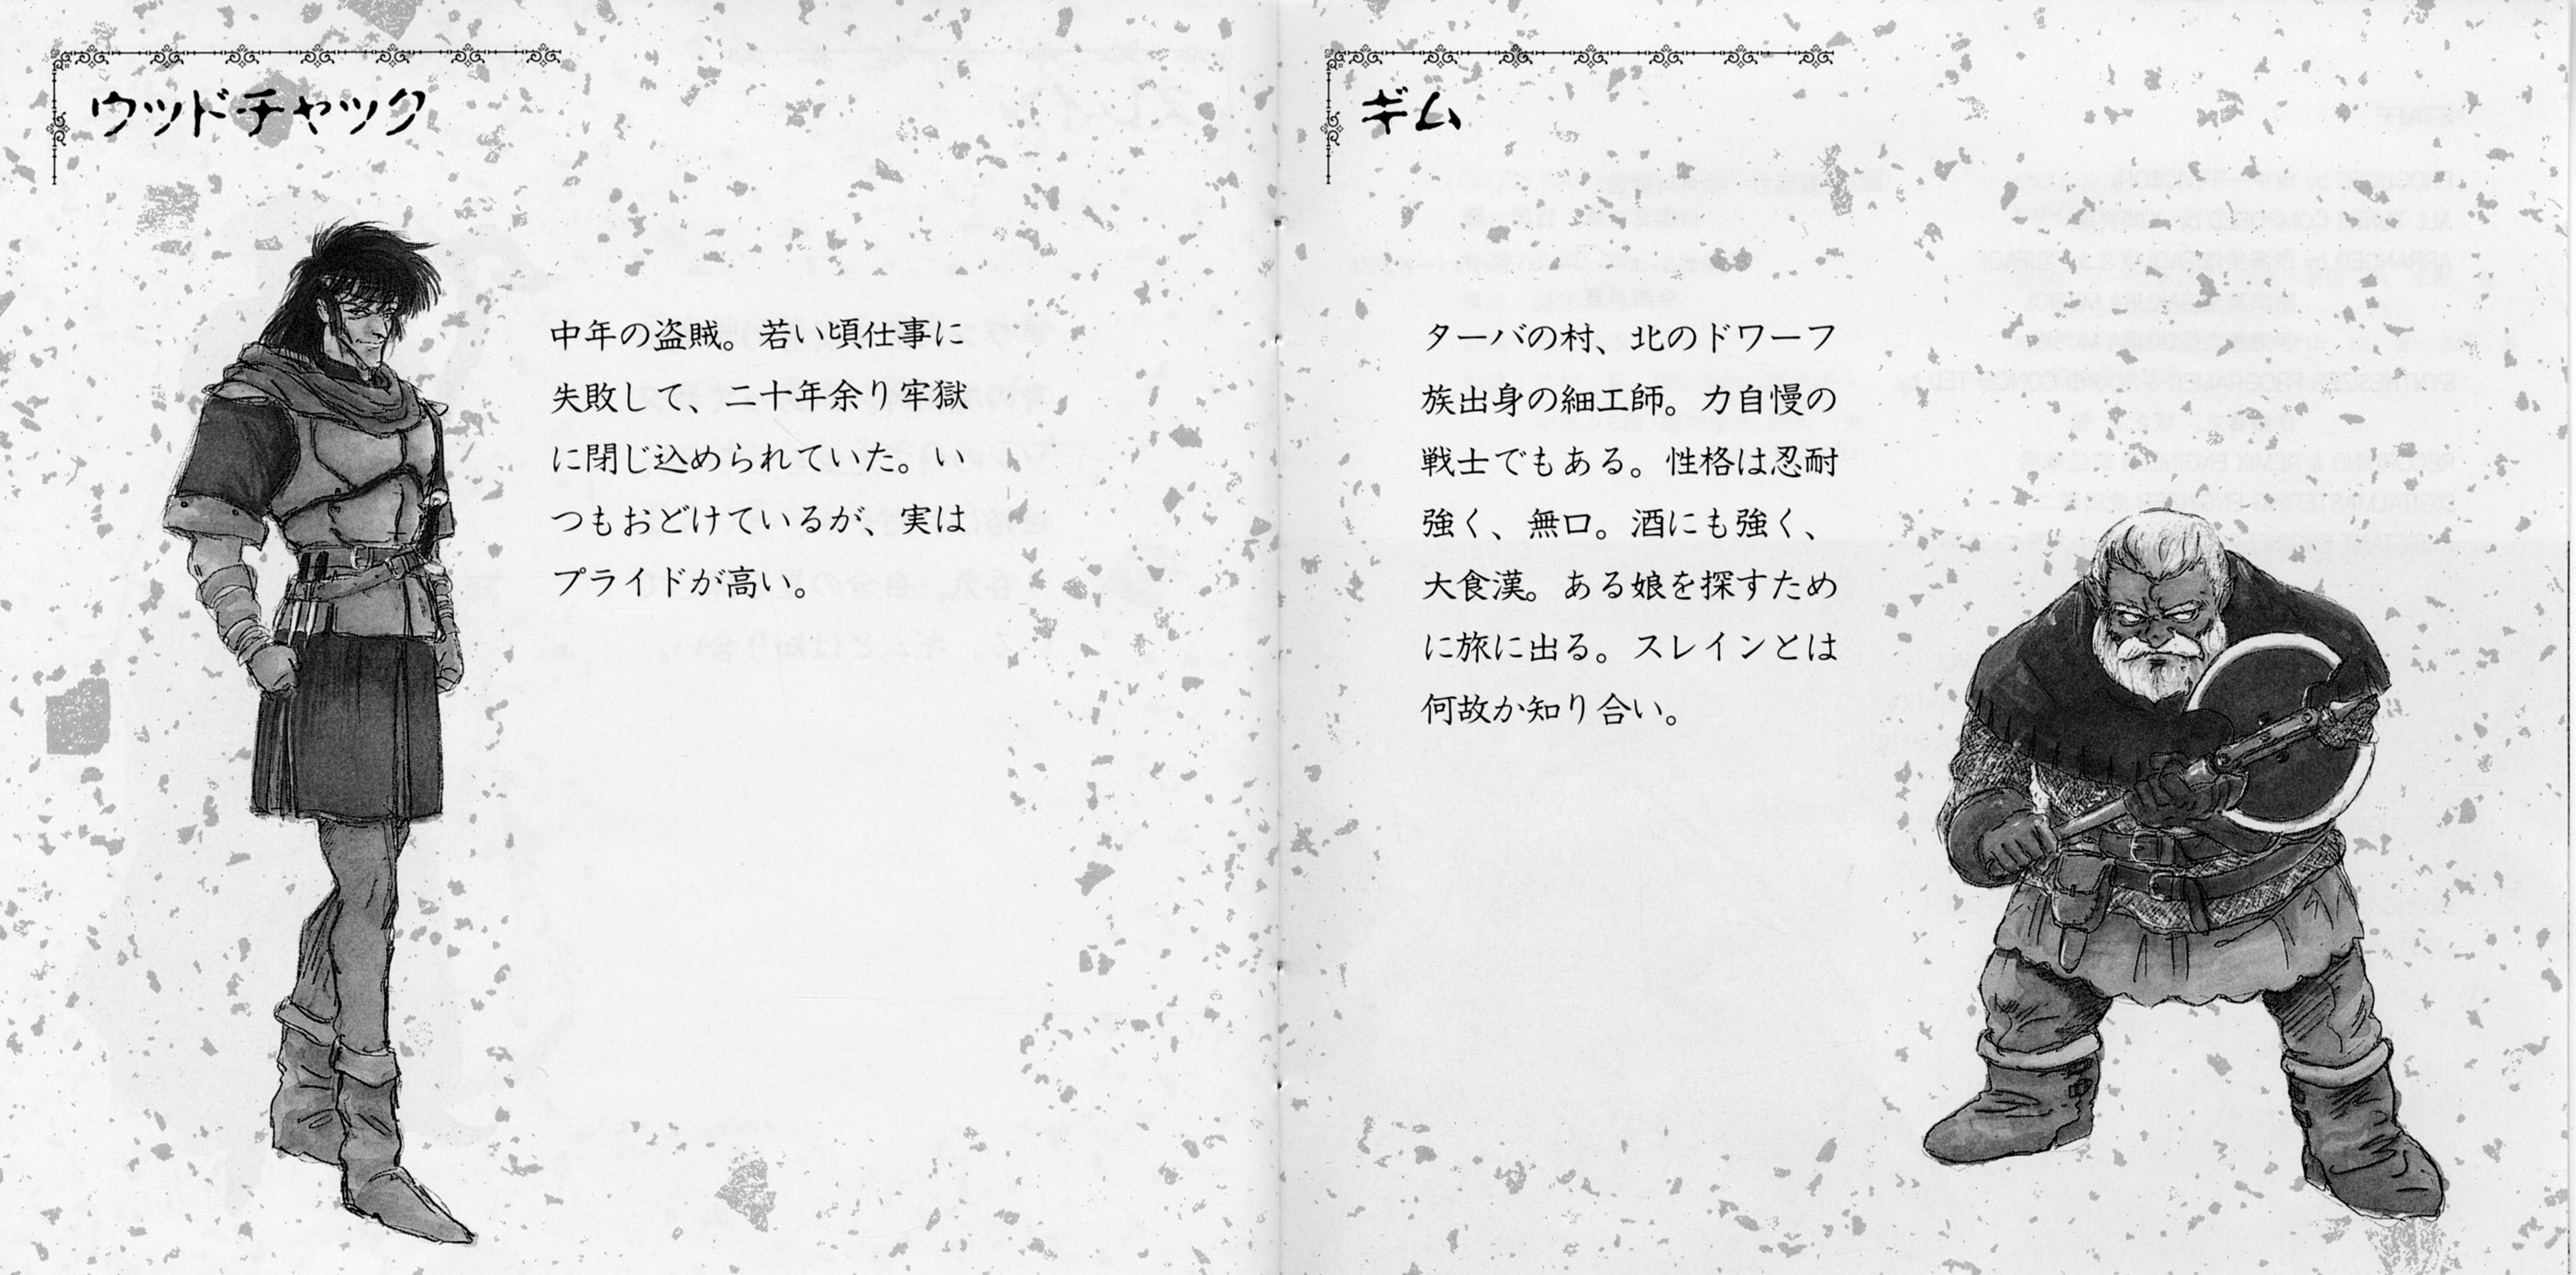 ウッドチャック
中年の盗賊。若い頃仕事に
失敗して、二十年余り牢獄
に閉じ込められていた。い
つもおどけているが、実は
プライドが高い。
ギム
ターバの村、北のドワーフ
族出身の細工師。力自慢の
戦士でもある。性格は忍耐
強く、無口。酒にも強く、
大食漢。ある娘を探すため
に旅に出る。スレインとは
何故か知り合い。